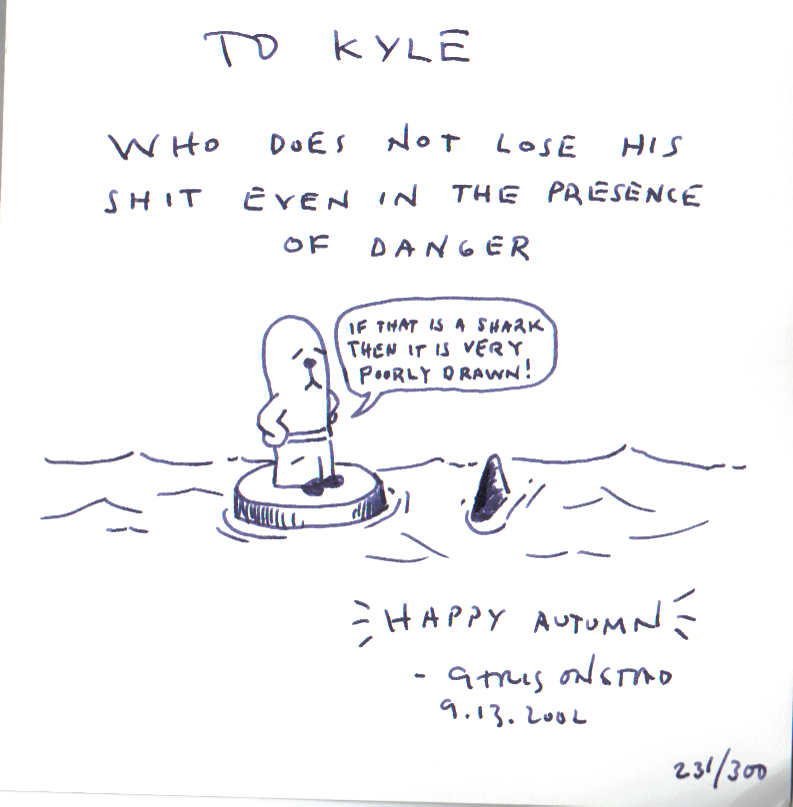 TO KYLE
WHO DOES NOT LOSE HIS
SHIT EVEN IN THE PRESENCE
OF DANGER
IF THAT IS A SHARK
THEN IT IS VERY
POORLY DRAWN!
HAPPY AUTUMN
- CHRIS ONSTAD
9.13.2002
231/300